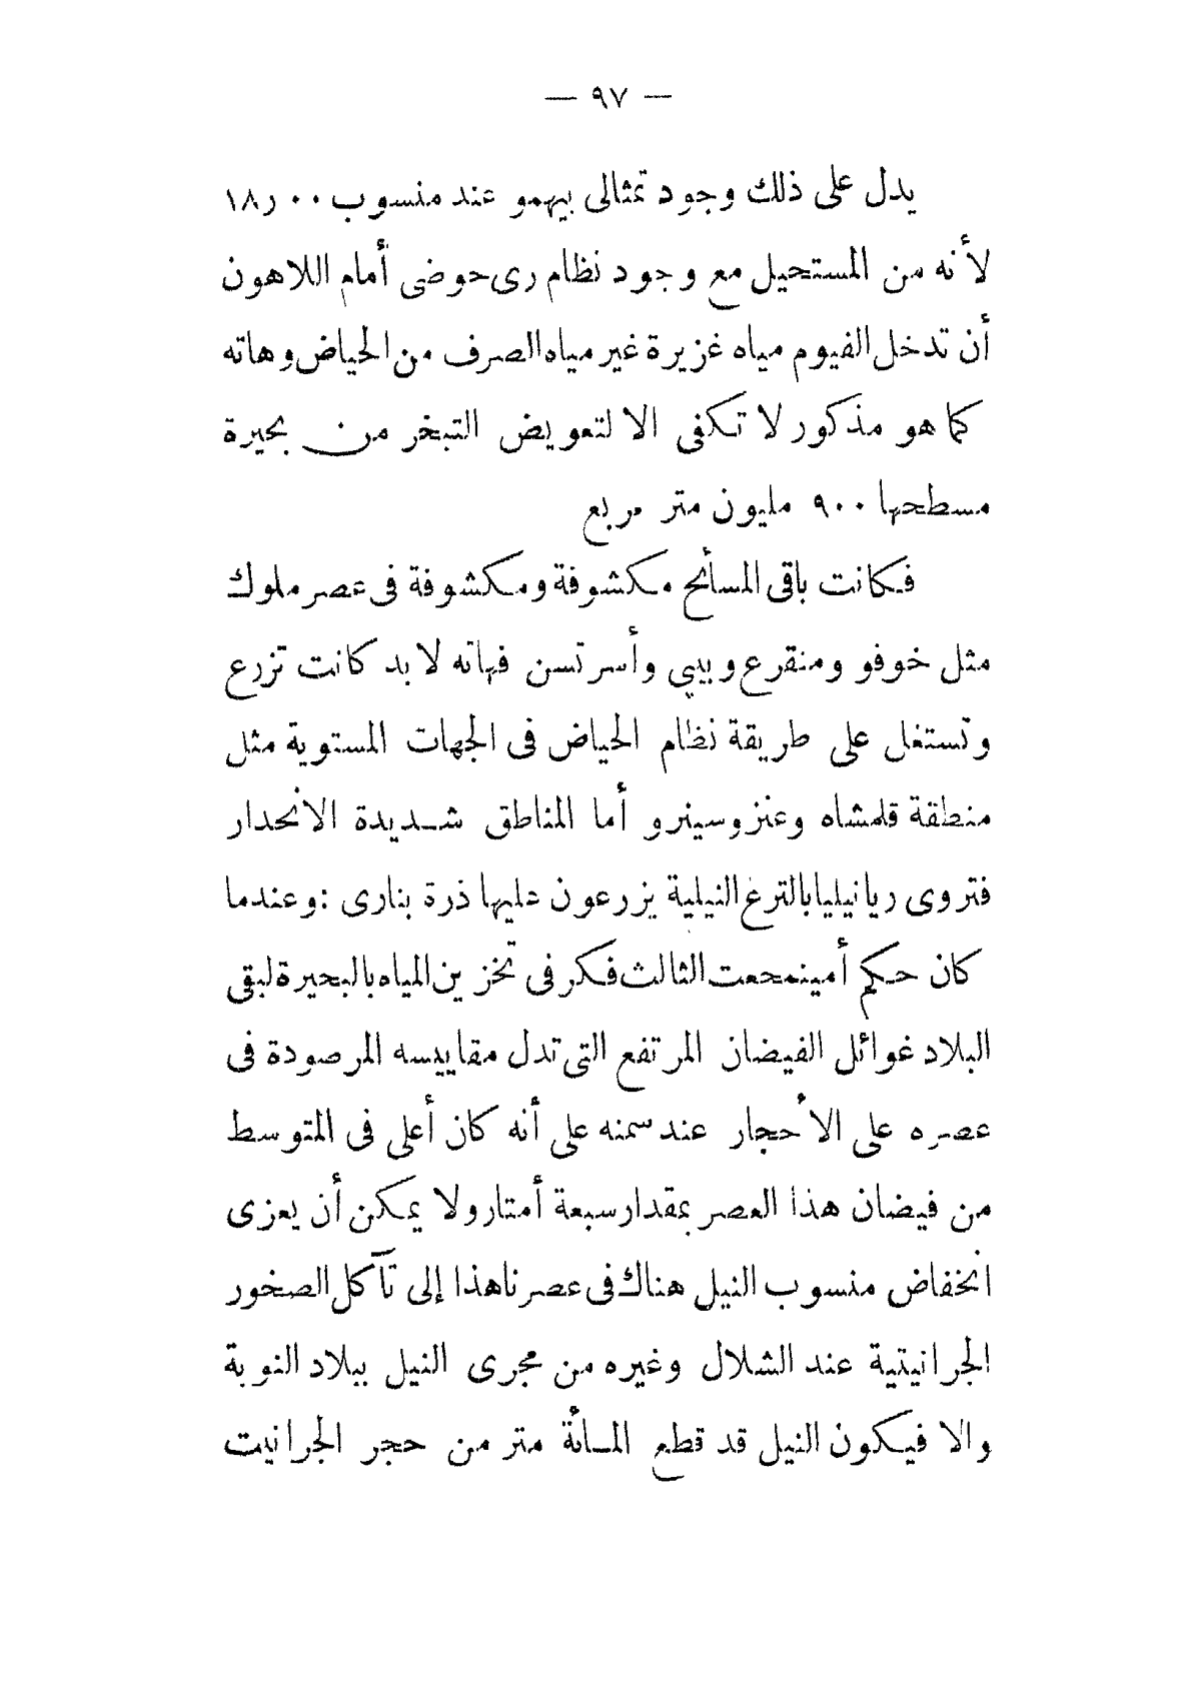 — ٩٧ —
يدل على ذلك وجود تمثالى بيهمو عند منسوب ٠٠ر١٨
لأنه من المستحيل مع وجود نظام رى حوضى أمام اللاهون
أن تدخل الفيوم مياه غزيرة غير مياه الصرف من الحياض وهاته
كما هو مذكور لا تكفى الا لتعويض التبخر من بحيرة
مسطحها ٩٠٠ مليون متر مربع
فكانت باقى المسأئح مكشوفة ومكشوفة فى عصر ملوك
مثل خوفو ومنقرع وبيبي وأسرتسن فهاته لا بد كانت تزرع
وتستغل على طريقة نظام الحياض فى الجهات المستوية مثل
منطقة قلمشاه وعنز وسينرو أما المناطق شديدة الانحدار
فتروى ريا نيليا بالترع النيلية يزرعون عليها ذرة بنارى : وعندما
كان حكم أمينمحعت الثالث فكر فى تخزين المياه بالبحيرة لبقى
البلاد غوائل الفيضان المرتفع التى تدل مقاييسه المرصودة فى
عصره على الأحجار عند سمنه على أنه كان أعلى فى المتوسط
من فيضان هذا العصر بمقدار سبعة أمتار ولا يمكن أن يعزى
انخفاض منسوب النيل هناك فى عصرنا هذا إلى تآكل الصخور
الجرانيتية عند الشلال وغيره من مجرى النيل ببلاد النوبة
والا فيكون النيل قد قطع المأئة متر من حجر الجرانيت